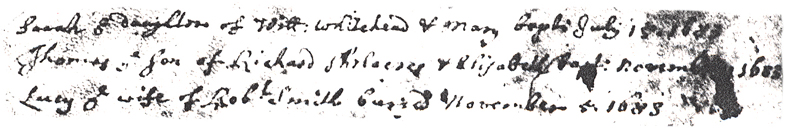 Sarah ye daughter of Will: Whitehead & Mary bapt: July 1683
Thomas ye Son of Richard & Elisabeth bapt: November 1683
Lucy ye wife of Robt Smith buried November 5: 1683